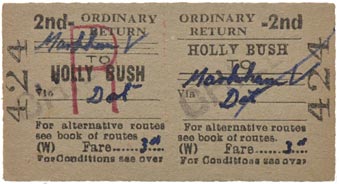 2nd- ORDINARY RETURN
Markham
TO
HOLLY BUSH
Via Det
For alternative routes
see book of routes.
(W) Fare 3
For Conditions see over
424
R
ORDINARY RETURN -2nd
HOLLY BUSH
TO
Markham
Via Det
For alternative routes
see book of routes.
(W) Fare 3
For Conditions see over
424